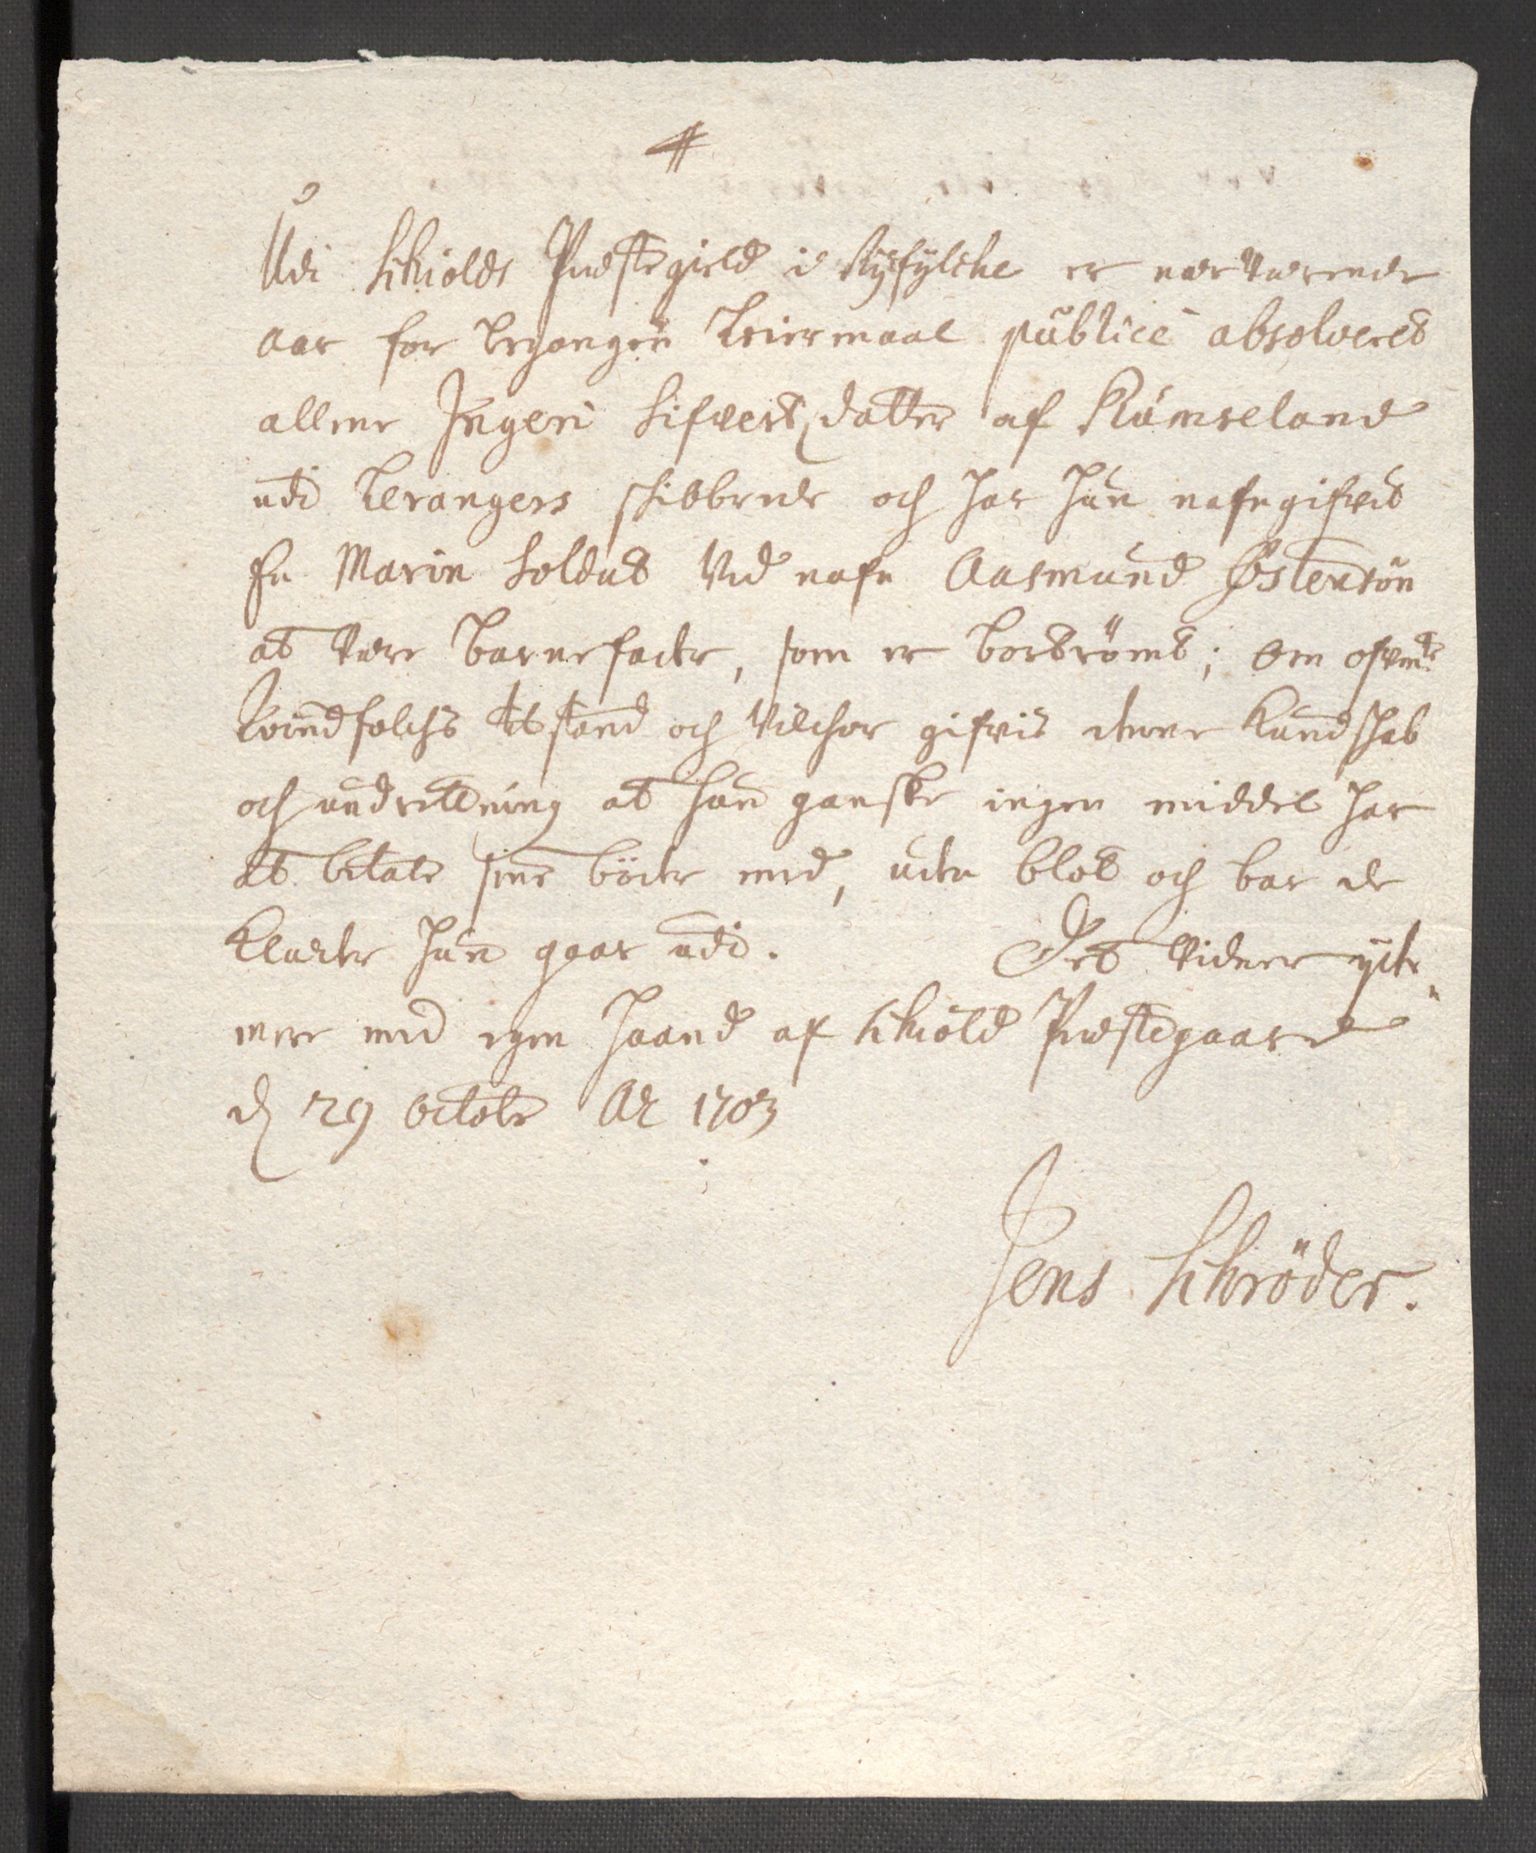 Udi Schiolds Præstegield i Ryfylche er nærværende
aar for begangen Leiermaal publicè absolveret
allene Ingeri Sifverts datter af Rumseland
udi Lerangers schibbrede och har hun nafngifvet
En Marin Soldat Ved nafn Aasmund Østensøn
at være barnefader, som er bortrömt; Om ofvente
Qvindfolchs tilstand och Vilchor gifvis denne Kundschab
och undretning at hun ganske ingen middel har
at betale sine böder med, uden blot och bar de
Klæder hun gaar udi. Det vidner yder
mere med egen Haand af Schiold Præstegaard
d 29 Octobr Ao 1703
Jens Schröder.